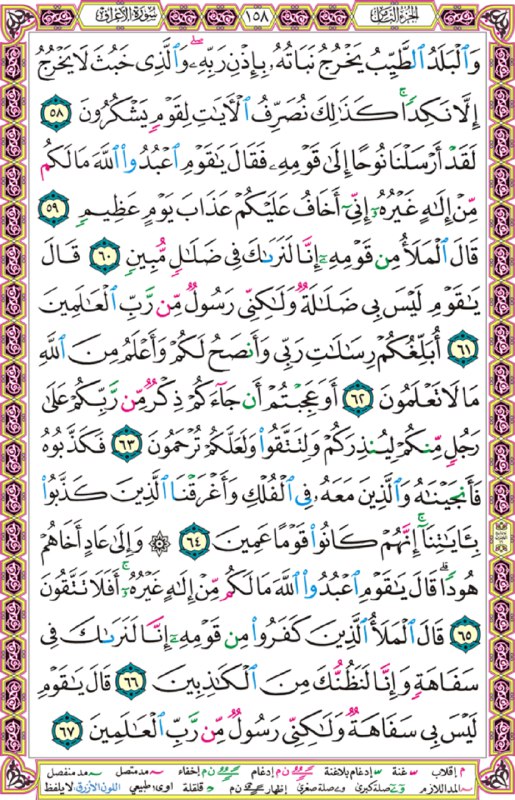 الجزء الثامن ١٥٨ سورة الأعراف
وَٱلۡبَلَدُ ٱلطَّيِّبُ يَخۡرُجُ نَبَاتُهُۥ بِإِذۡنِ رَبِّهِۦۖ وَٱلَّذِي خَبُثَ لَا يَخۡرُجُ
إِلَّا نَكِدٗاۚ كَذَٰلِكَ نُصَرِّفُ ٱلۡأٓيَٰتِ لِقَوۡمٖ يَشۡكُرُونَ ٥٨
لَقَدۡ أَرۡسَلۡنَا نُوحًا إِلَىٰ قَوۡمِهِۦ فَقَالَ يَٰقَوۡمِ ٱعۡبُدُواْ ٱللَّهَ مَا لَكُم
مِّنۡ إِلَٰهٍ غَيۡرُهُۥٓ إِنِّيٓ أَخَافُ عَلَيۡكُمۡ عَذَابَ يَوۡمٍ عَظِيمٖ ٥٩
قَالَ ٱلۡمَلَأُ مِن قَوۡمِهِۦٓ إِنَّا لَنَرَىٰكَ فِي ضَلَٰلٖ مُّبِينٖ ٦٠ قَالَ
يَٰقَوۡمِ لَيۡسَ بِي ضَلَٰلَةٞ وَلَٰكِنِّي رَسُولٞ مِّن رَّبِّ ٱلۡعَٰلَمِينَ
٦١ أُبَلِّغُكُمۡ رِسَٰلَٰتِ رَبِّي وَأَنصَحُ لَكُمۡ وَأَعۡلَمُ مِنَ ٱللَّهِ
مَا لَا تَعۡلَمُونَ ٦٢ أَوَعَجِبۡتُمۡ أَن جَآءَكُمۡ ذِكۡرٞ مِّن رَّبِّكُمۡ عَلَىٰ
رَجُلٖ مِّنكُمۡ لِيُنذِرَكُمۡ وَلِتَتَّقُواْ وَلَعَلَّكُمۡ تُرۡحَمُونَ ٦٣ فَكَذَّبُوهُ
فَأَنجَيۡنَٰهُ وَٱلَّذِينَ مَعَهُۥ فِي ٱلۡفُلۡكِ وَأَغۡرَقۡنَا ٱلَّذِينَ كَذَّبُواْ
بِـَٔايَٰتِنَآۚ إِنَّهُمۡ كَانُواْ قَوۡمًا عَمِينَ ٦٤ ۞ وَإِلَىٰ عَادٍ أَخَاهُمۡ
هُودٗاۚ قَالَ يَٰقَوۡمِ ٱعۡبُدُواْ ٱللَّهَ مَا لَكُم مِّنۡ إِلَٰهٍ غَيۡرُهُۥٓۚ أَفَلَا تَتَّقُونَ
٦٥ قَالَ ٱلۡمَلَأُ ٱلَّذِينَ كَفَرُواْ مِن قَوۡمِهِۦٓ إِنَّا لَنَرَىٰكَ فِي
سَفَاهَةٖ وَإِنَّا لَنَظُنُّكَ مِنَ ٱلۡكَٰذِبِينَ ٦٦ قَالَ يَٰقَوۡمِ
لَيۡسَ بِي سَفَاهَةٞ وَلَٰكِنِّي رَسُولٞ مِّن رَّبِّ ٱلۡعَٰلَمِينَ ٦٧
م إقلاب س غنة إدغام بلاغنة ن م إدغام ن م إخفاء مد متصل مد منفصل
المد اللازم صلة كبرى صلة صغرى إظهار ن م قلقلة اوى طبيعي اللون الأزرق لا يلفظ